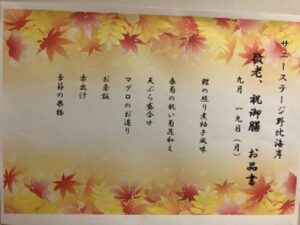 サニーステージ野比海岸
敬老、祝御膳 お品書
九月 一九日(月)
鰹の照り煮柚子風味
春菊の祝い菊花和え
天ぷら盛合せ
マグロのお造り
お赤飯
赤出汁
季節の果物